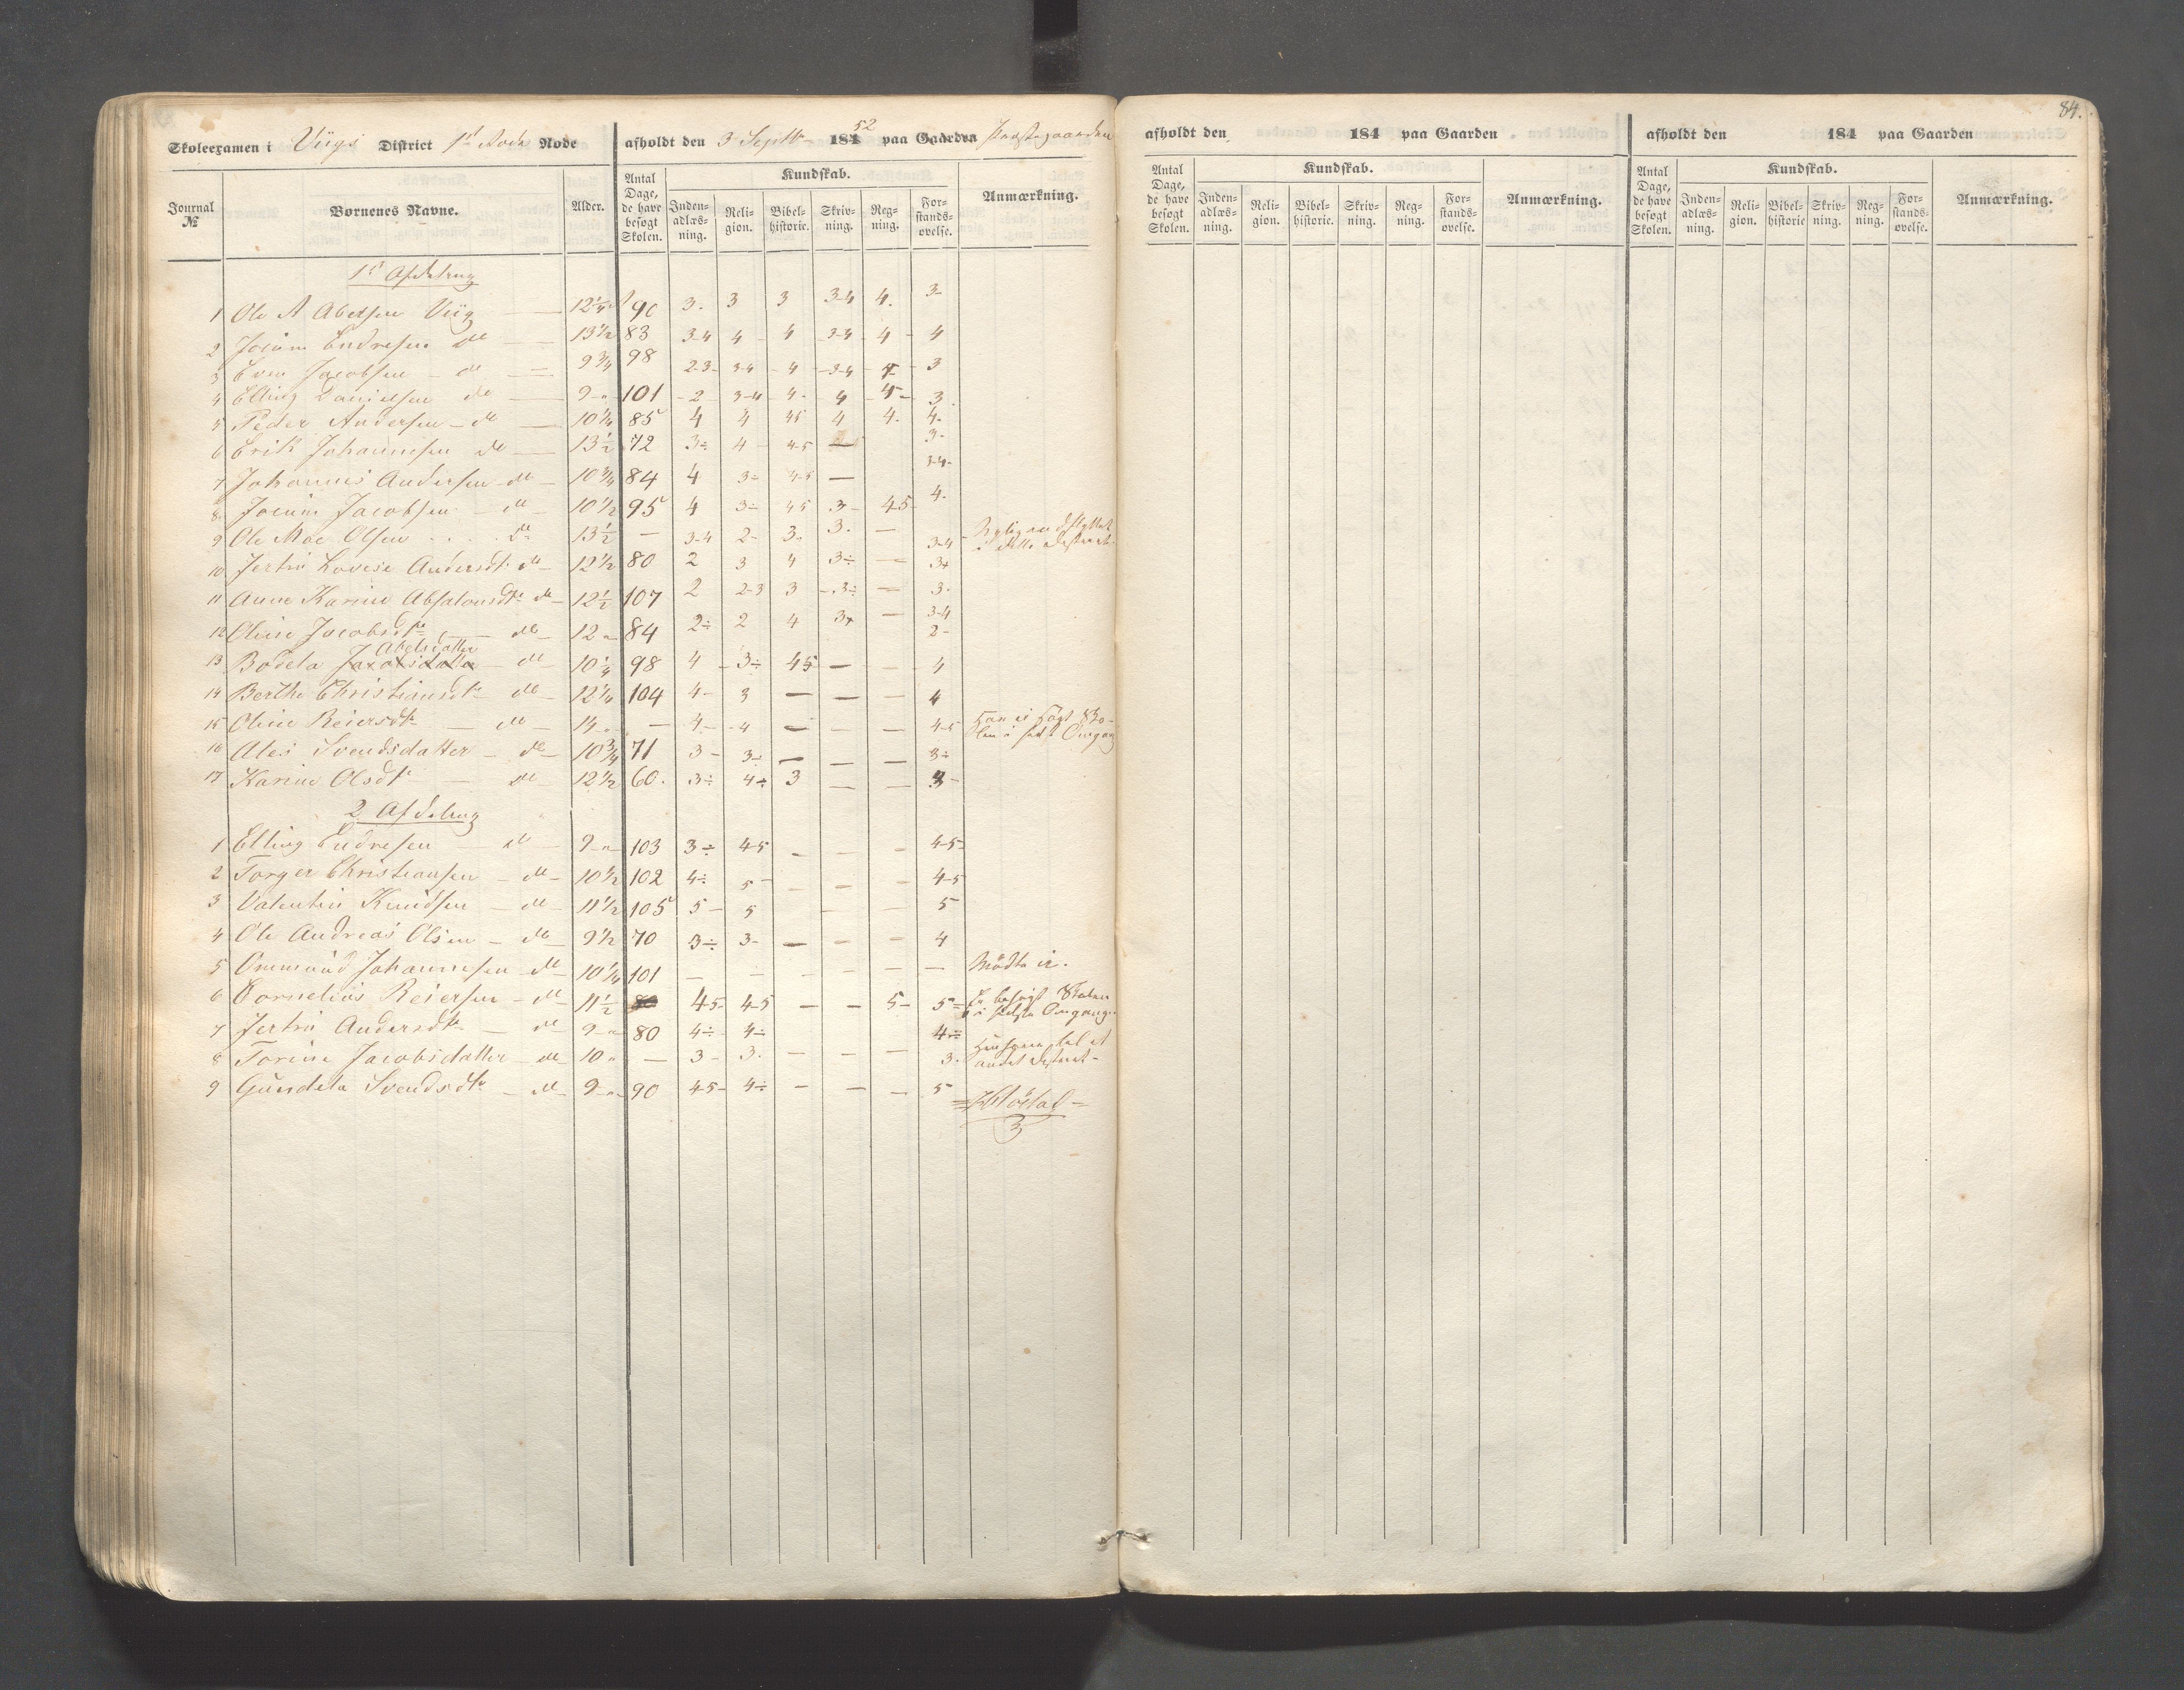 84.
Skoleexamen i Viigs District 1st Rode Rode afholdt den 3 Septbr 1852 paa Gaarden Præstegaarden
Journal № Børnenes Navne. Alder. Antal Dage, de have besøgt Skolen. Kundskab. Inden-adlæs-ning. Reli-gion. Bibel-historie. Skriv-ning. Reg-ning. For-stands-øvelse. Anmærkning.
1st Afdeling
1 Ole A Abelsen Viig 12 1/4 90 3- 3 3 3-4 4. 3-
2 Jocum Endresen do 13 1/2 83 3-4 4 - 4 -3-4 - 4 - 4
3 Sven Jacobsen - do 9 3/4 98 2-3- 3-4 - 4 -3-4 - 4 - 3
4 Elling Danielsen do 9 " 101 - 2 3-4 - 4 - 4 4- 3
5 Peder Andersen - do 10 1/4 85 4 4 45 4 4. 4-
6 Erik Johannesen do 13 1/2 72 3÷ 4 - 4-5 — 3-
7 Johannes Andersen do 10 3/4 84 4 3- 4-5 — 3-4-
8 Jocum Jacobsen - do 10 1/2 95 4 3- 45 3- 45- 4-
9 Ole Moe Olsen . . . . do 13 1/2 — 3-4 2- 3- 3. — 3-4 indflyttet
i dette District
10 Jertru Lovise Andersdt do 12 1/2 80 2 3 4 3÷ — 3+
11 Anne Karine Absalonsdtr do 12 1/2 107 2 2-3 3 - 3÷ — 3-
12 Oline Jacobsdtr do 12 " 84 2÷ 2 4 3+ — 3-4
2-
13 Bodela Jacobsdatter Abelsdatter - do 10 1/4 98 4 - 3÷ 45 — — 4
14 Berthe Christiansdtr do 12 1/4 104 4- 3 — — — 4
15 Oline Reiersdtr — do 14 " — 4- - 4 — — — 4-5 Har ei søgt Sko-
len i sidst Omgang
16 Ales Svendsdatter - do 10 3/4 71 3 - 3÷ — — — 3÷
17 Karine Olsdtr — do 12 1/2 60. 3÷ 4÷ 3 — — 3-
2 Afdeling
1 Elling Endresen do 9 " 103 3÷ 45 - — - 4-5-
2 Torger Christiansen - do 10 1/2 102 4÷ 5 - - - - 4-5
3 Valentin Knudsen - do 11 1/2 105 5 - 5 — — 5
4 Ole Andreas Olsen - do 9 1/2 70 3÷ 3- — - - 4
5 Ommund Johannesen do 10 1/4 101 — — - - - — Mødte ei.
6 Cornelius Reiersen - do 11 1/2 80 45- 4-5 — — 5- 5- Ei besøgt Skolen
i sidste Omgang
7 Jertru Andersdtr — do 9 " 80 4÷ 4÷ 4÷
8 Torine Jacobsdatter do 10 " — 3 - 3. — — — 3. til et
andet District -
9 Gundela Svendsdtr - do 9 " 90 45- 4÷ — — — 5
afholdt den 184 paa Gaarden
Antal Dage, de have besøgt Skolen. Kundskab. Inden-adlæs-ning. Reli-gion. Bibel-historie. Skriv-ning. Reg-ning. For-stands-øvelse. Anmærkning.
afholdt den 184 paa Gaarden
Antal Dage, de have besøgt Skolen. Kundskab. Inden-adlæs-ning. Reli-gion. Bibel-historie Skriv-ning. Reg-ning. For-stands-øvelse. Anmærkning.